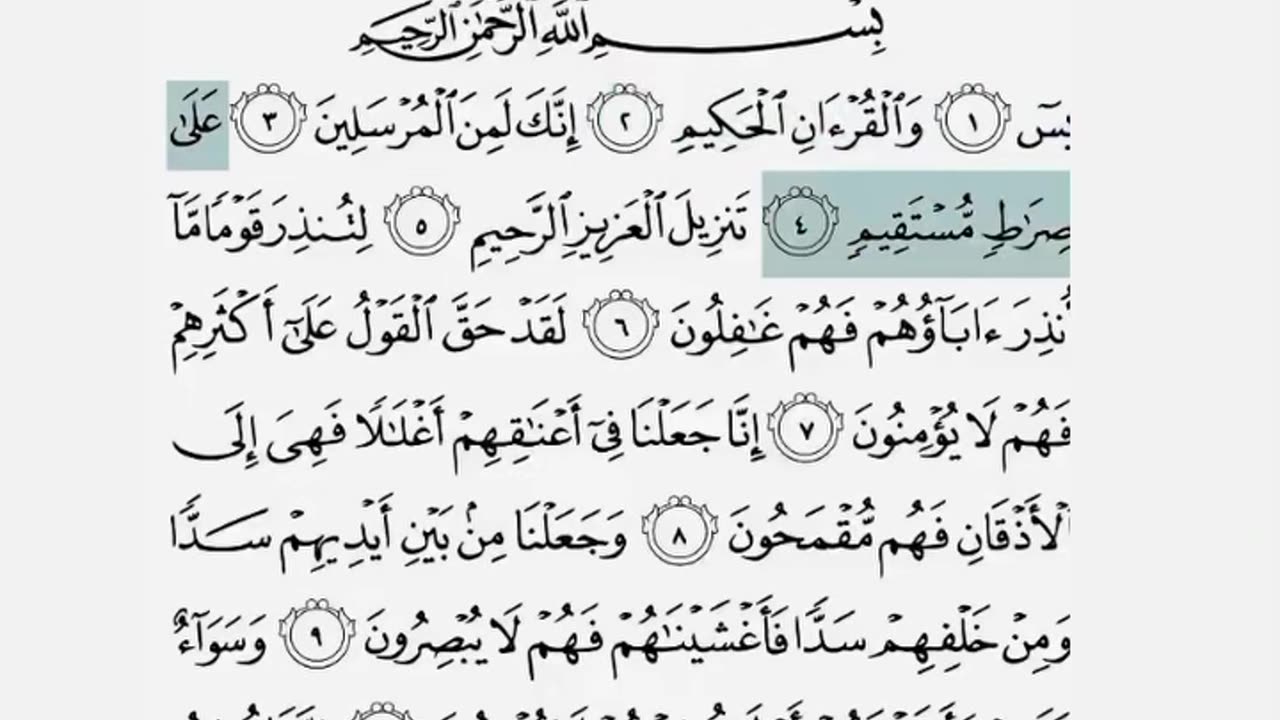 بِسْمِ ٱللَّهِ ٱلرَّحْمَٰنِ ٱلرَّحِيمِ
يسٓ ١ وَٱلْقُرْءَانِ ٱلْحَكِيمِ ٢ إِنَّكَ لَمِنَ ٱلْمُرْسَلِينَ ٣ عَلَىٰ
صِرَٰطٍ مُّسْتَقِيمٍ ٤ تَنزِيلَ ٱلْعَزِيزِ ٱلرَّحِيمِ ٥ لِتُنذِرَ قَوْمًا مَّآ
أُنذِرَ ءَابَآؤُهُمْ فَهُمْ غَٰفِلُونَ ٦ لَقَدْ حَقَّ ٱلْقَوْلُ عَلَىٰٓ أَكْثَرِهِمْ
فَهُمْ لَا يُؤْمِنُونَ ٧ إِنَّا جَعَلْنَا فِىٓ أَعْنَٰقِهِمْ أَغْلَٰلًا فَهِىَ إِلَى
ٱلْأَذْقَانِ فَهُم مُّقْمَحُونَ ٨ وَجَعَلْنَا مِنۢ بَيْنِ أَيْدِيهِمْ سَدًّا
وَمِنْ خَلْفِهِمْ سَدًّا فَأَغْشَيْنَٰهُمْ فَهُمْ لَا يُبْصِرُونَ ٩ وَسَوَآءٌ